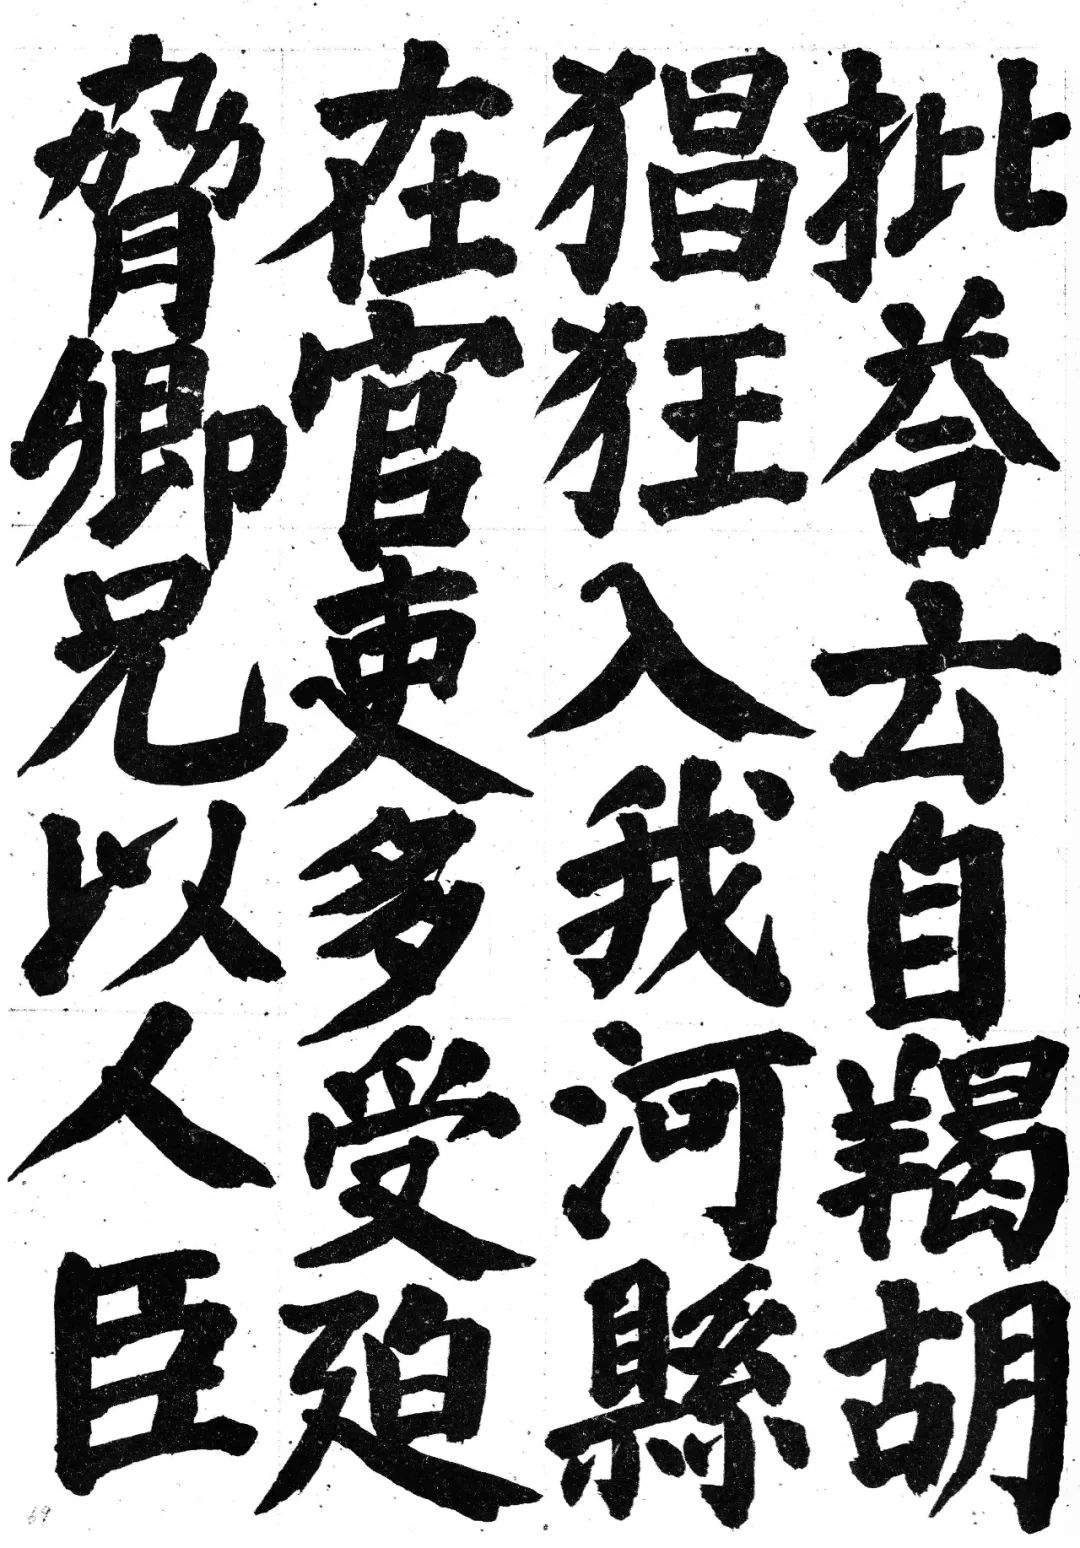 批荅云自羯胡
猖狂入我河縣
在官吏多受廹
脅卿兄以人臣
69